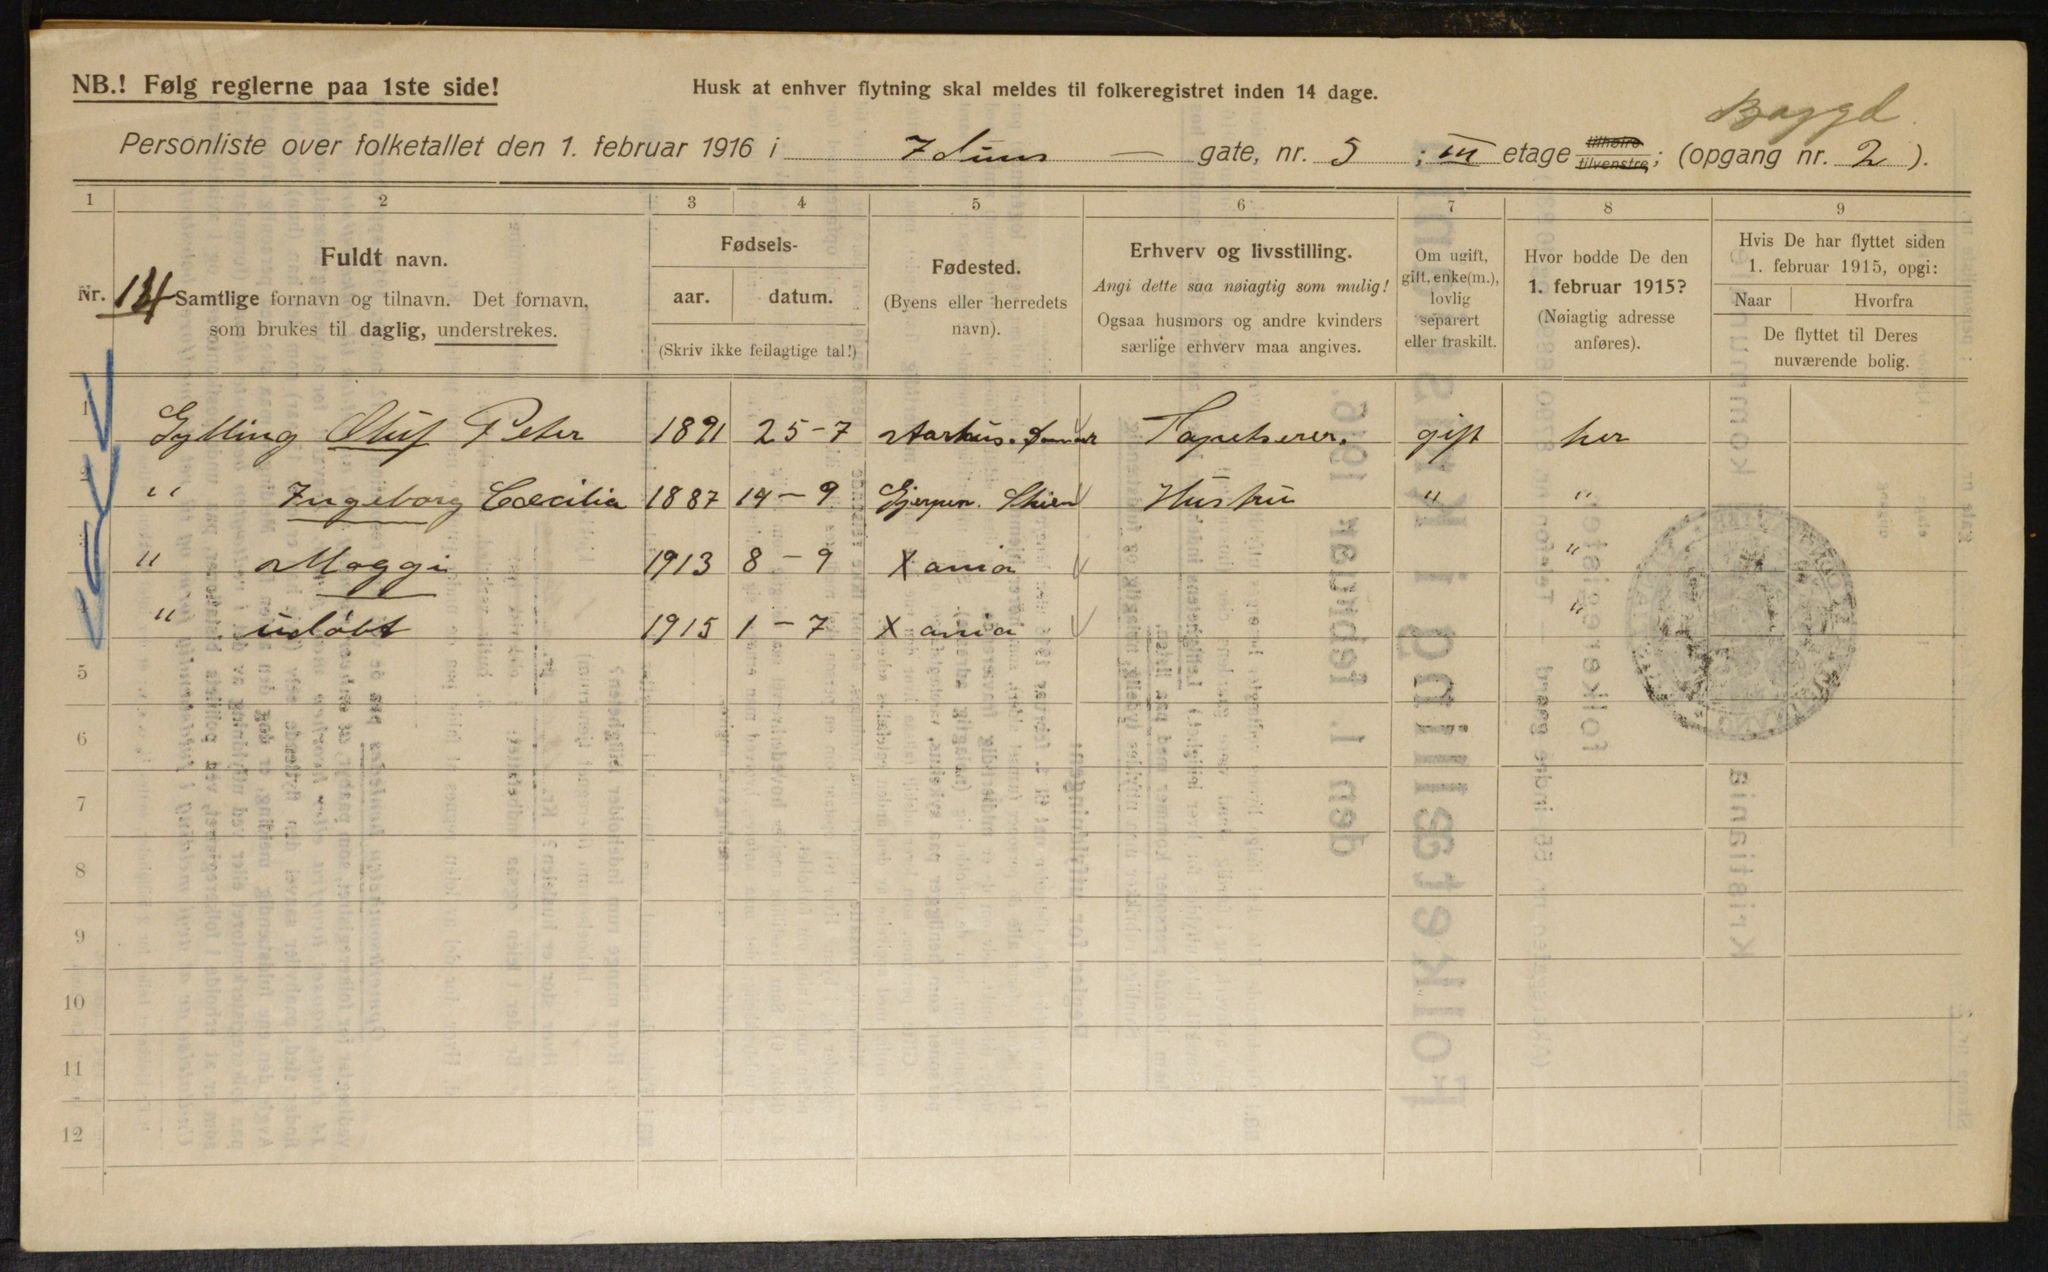 NB.! Følg reglerne paa 1ste side!
Husk at enhver flytning skal meldes til folkeregistret inden 14 dage.
Baggd
Personliste over folketallet den 1. februar 1916 i Iduns — gate, nr. 5 ; III etage tilhøire tilvenstre; (opgang nr. 2 ).
1 2 3 4 5 6 7 8 9
Nr. 14
Fuldt navn.
Samtlige fornavn og tilnavn. Det fornavn,
som brukes til daglig, understrekes.
Fødsels-
aar. datum.
(Skriv ikke feilagtige tal!)
Fødested.
(Byens eller herredets
navn).
Erhverv og livsstilling.
Angi dette saa nøiagtig som mulig!
Ogsaa husmors og andre kvinders
særlige erhverv maa angives.
Om ugift,
gift, enke(m.),
lovlig
separert
eller fraskilt.
Hvor bodde De den
1. februar 1915?
(Nøiagtig adresse
anføres).
Hvis De har flyttet siden
1. februar 1915, opgi:
Naar Hvorfra
De flyttet til Deres
nuværende bolig.
1 Gylling Oluf Peter 1891 25-7 Aarhus. Danmar Tapetserer. gift her
2 " Ingeborg Cæcilia 1887 14-9 Gjerpen. Skien Hustru " "
" Maggi 1913 8-9 Xania "
" udøbt 1915 1-7 Xania "
5
6
7
8
9
10
11
12